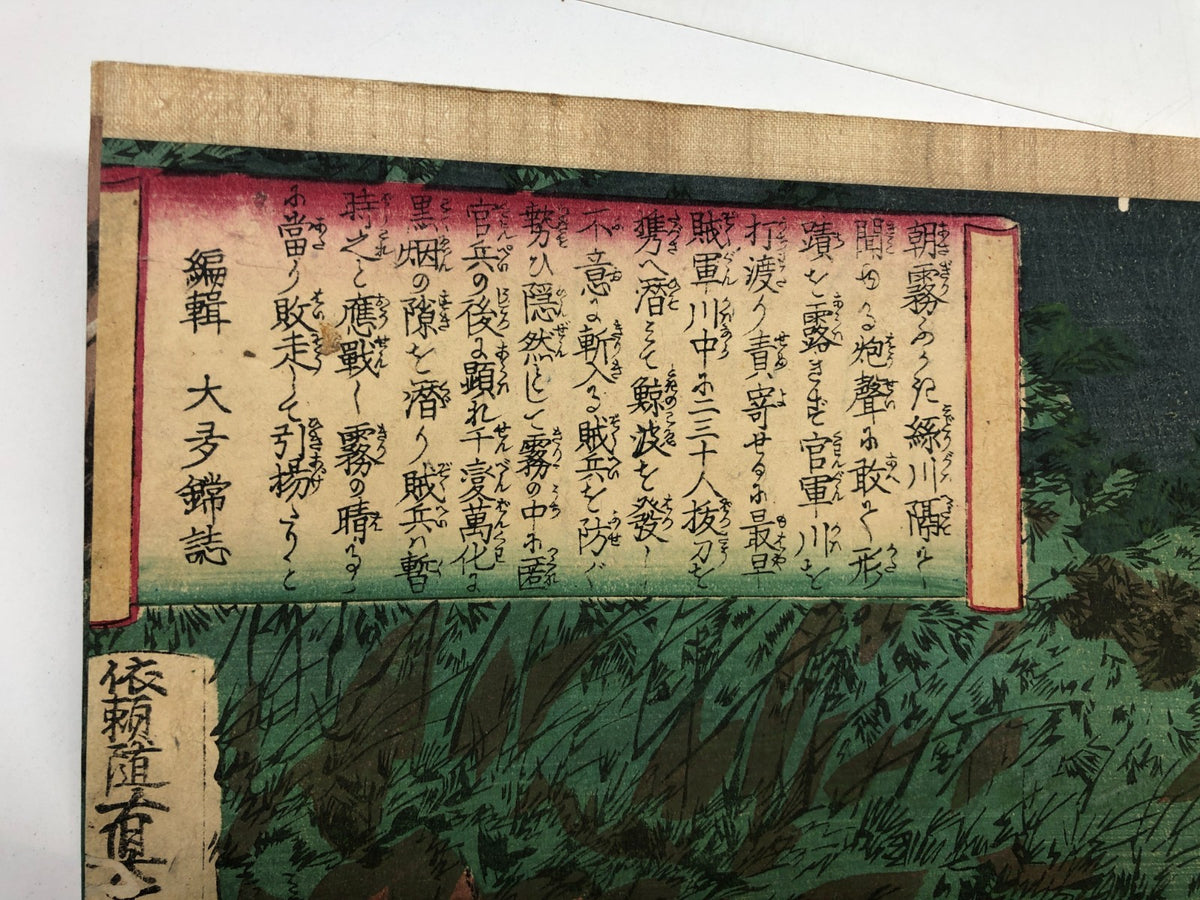 朝霧ふかき絲川隔て
聞ゆる炮聲に敢て形
蹟を露さず官軍川を
打渡り責寄せるに最早
賊軍川中に二三十人抜刀を
携へ潜みて鯨波を發し
不意に斬入る賊兵を防ぐ
勢ひ隠然として霧の中に匿
官兵の後に顕れ千変萬化に
黒烟の隙を潜り賊兵ハ暫
時之と應戰し霧の晴る
に當り敗走して引揚たりと
編輯 大多鐺誌
依頼随